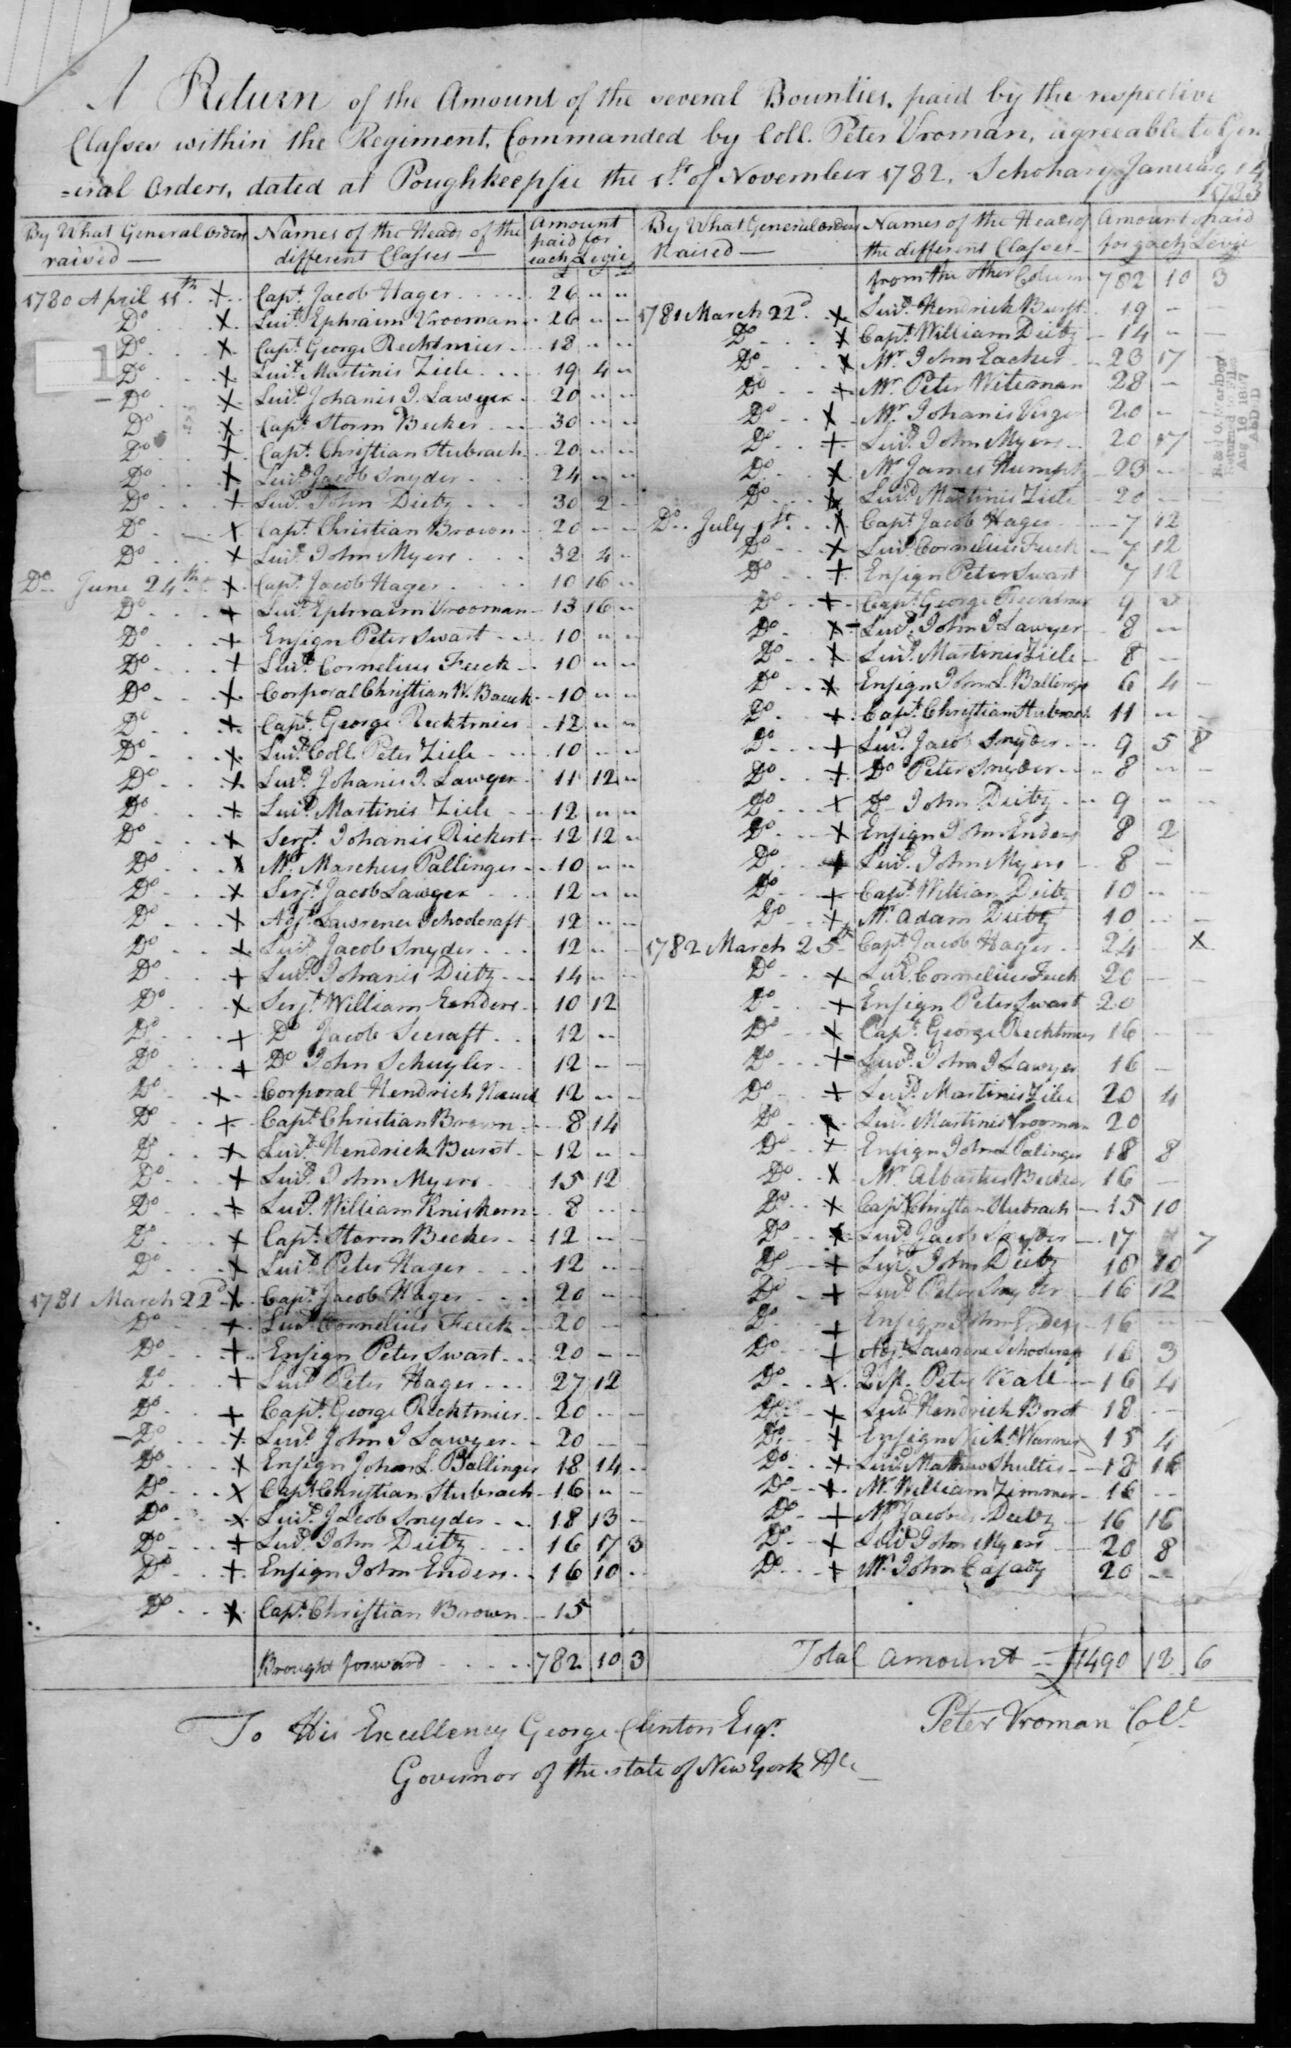 A Return of the Amount of the several Bounties, paid by the respective
Classes within the Regiment, Commanded by Coll. Peter Vroman, agreeable to Gen
=eral Orders, dated at Poughkeepsie the 1st of November 1782. Schohary January 14
1783
By What General Orders raised — Names of the Heads of the different Classes — Amount paid for each Levie
1780 April 11th X Capt. Jacob Hager 26 " "
Do X Lieut. Ephraim Vrooman 26 " "
Do X Capt. George Recktmier 18 " "
Do X Lieut. Martinis Ziele 19 4 "
Do X Lieut. Johanis J. Lawyer 20 " "
Do X Capt. Storm Becker 30 " "
Do X Capt. Christian Stubrach 20 " "
Do X Lieut. Jacob Snyder 24 " "
Do + Lieut. John Dietz 30 2 "
Do X Capt. Christian Brown 20 " "
Do X Lieut. John Myers 32 4 "
Do June 24th X Capt. Jacob Hager 10 16 "
Do + Lieut. Ephraim Vrooman 13 16 "
Do + Ensign Peter Swart 10 " "
Do + Lieut. Cornelius Feeck 10 " "
Do X Corporal Christian W. Bauck 10 " "
Do + Capt. George Recktmier 12 " "
Do X Lieut. Coll. Peter Ziele 10 " "
Do + Lieut. Johanis J. Lawyer 11 12 "
Do + Lieut. Martinis Ziele 12 " "
Do X Serjt. Johanis Rickert 12 12 "
Do X Mr. Marcheus Pallinger 10 " "
Do X Serjt. Jacob Lawyer 12 " "
Do + Adjt. Lawrence Schoolcraft 12 " "
Do X Lieut. Jacob Snyder 12 " "
Do + Lieut. Johanis Dietz 14 " "
Do X Serjt. William Enders 10 12
Do + Do Jacob Seeraft 12 "
Do + Do John Schuyler 12 " -
Do X Corporal Hendrich 12 " -
Do + Capt. Christian Brown 8 14
Do X Lieut. Hendrick Burst 12 " -
Do + Lieut. John Myers 15 12
Do + Lieut. William Kniskern 8 " -
Do X Capt. Storm Becker 12 " -
Do X Lieut. Peter Hager 12 " -
1781 March 22d X Capt. Jacob Hager 20 " -
Do + Lieut. Cornelius Feeck 20 - -
Do + Ensign Peter Swart 20 - -
Do + Lieut. Peter Hager 27 12
Do + Capt. George Recktmier 20 " -
Do X Lieut. John J Lawyer 20 - -
Do X Ensign Johan L. Ballinger 18 14 -
Do X Capt. Christian Stubrach 16 " -
Do X Lieut. Jacob Snyder 18 13 -
Do + Lieut. John Dietz 16 17 3
Do + Ensign John Enders 16 10 "
Do X Capt. Christian Brown 15
Brought forward 782 10 3
By What General Orders Raised — Names of the Heads of the different Classes — Amount paid for each Levie
from the other Colum 782 10 3
1781 March 22d X Lieut. Hendrick Burst 19 -
Do X Capt. William Dietz 14 - -
Do X Mr. John Eacker 23 17 -
Do + Mr. Peter Witerman 28 -
Do X Mr. Johanis 20 -
Do + Lieut. John Myers 20 17
Do X Mr. James 23 -
Do X Lieut. Martinis Ziele 20 -
Do July 1st X Capt. Jacob Hager 7 12
Do X Lieut. Cornelius Feeck 7 12
Do + Ensign Peter Swart 7 12
Do + Capt. George Recktmier 9
Do X Lieut. John J Lawyer 8 "
Do X Lieut. Martinis Ziele 8 -
Do X Ensign John L Ballinger 6 4 -
Do + Capt. Christian Stubrach 11 " -
Do + Lieut. Jacob Snyder 9 5 8
Do + Do Peter Snyder 8 " -
Do + Do John Dietz 9 " -
Do X Ensign John Enders 8 2
Do + Lieut. John Myers 8 -
Do + Capt. William Dietz 10 " -
Do + Mr. Adam Dietz 10 " -
1782 March 25th Capt. Jacob Hager 24 X
Do X Lieut. Cornelius Feeck 20 -
Do + Ensign Peter Swart 20
Do X Capt. George Recktmier 16 - -
Do + Lieut. John J Lawyer 16 -
Do + Lieut. Martinis Ziele 20 4
Do X Lieut. Martinis Vrooman 20
Do + Ensign John L Palinger 18 8
Do X Mr. Albartus Becker 16 -
Do X Capt. Christian Stubrach 15 10
Do X Lieut. Jacob Snyder 17 7
Do + Lieut. John Dietz 18 10
Do + Lieut. Peter Snyder 16 12
Do + Ensign John Enders 16 " -
Do + Adjt. Lawrence Schoolcraft 16 3
Do X Peter Ball 16 4
Do X Lieut. Hendrick Borst 18 -
Do X Ensign Nichs. Warner 15 4
Do X Lieut. Mathew Shultis 18 16
Do X Mr. William Zimmer 16 -
Do + Mr. Jacobus Dietz 16 16
Do X Lieut. John Myers 20 8
Do + Mr. John Casady 20 -
Total Amount = £1490 12 6
Peter Vroman Coll.
To His Excellency George Clinton Esqr.
Governor of the state of New York &c
1
R. & P. O. War Dept.
Returned to Files
Aug 16 1897